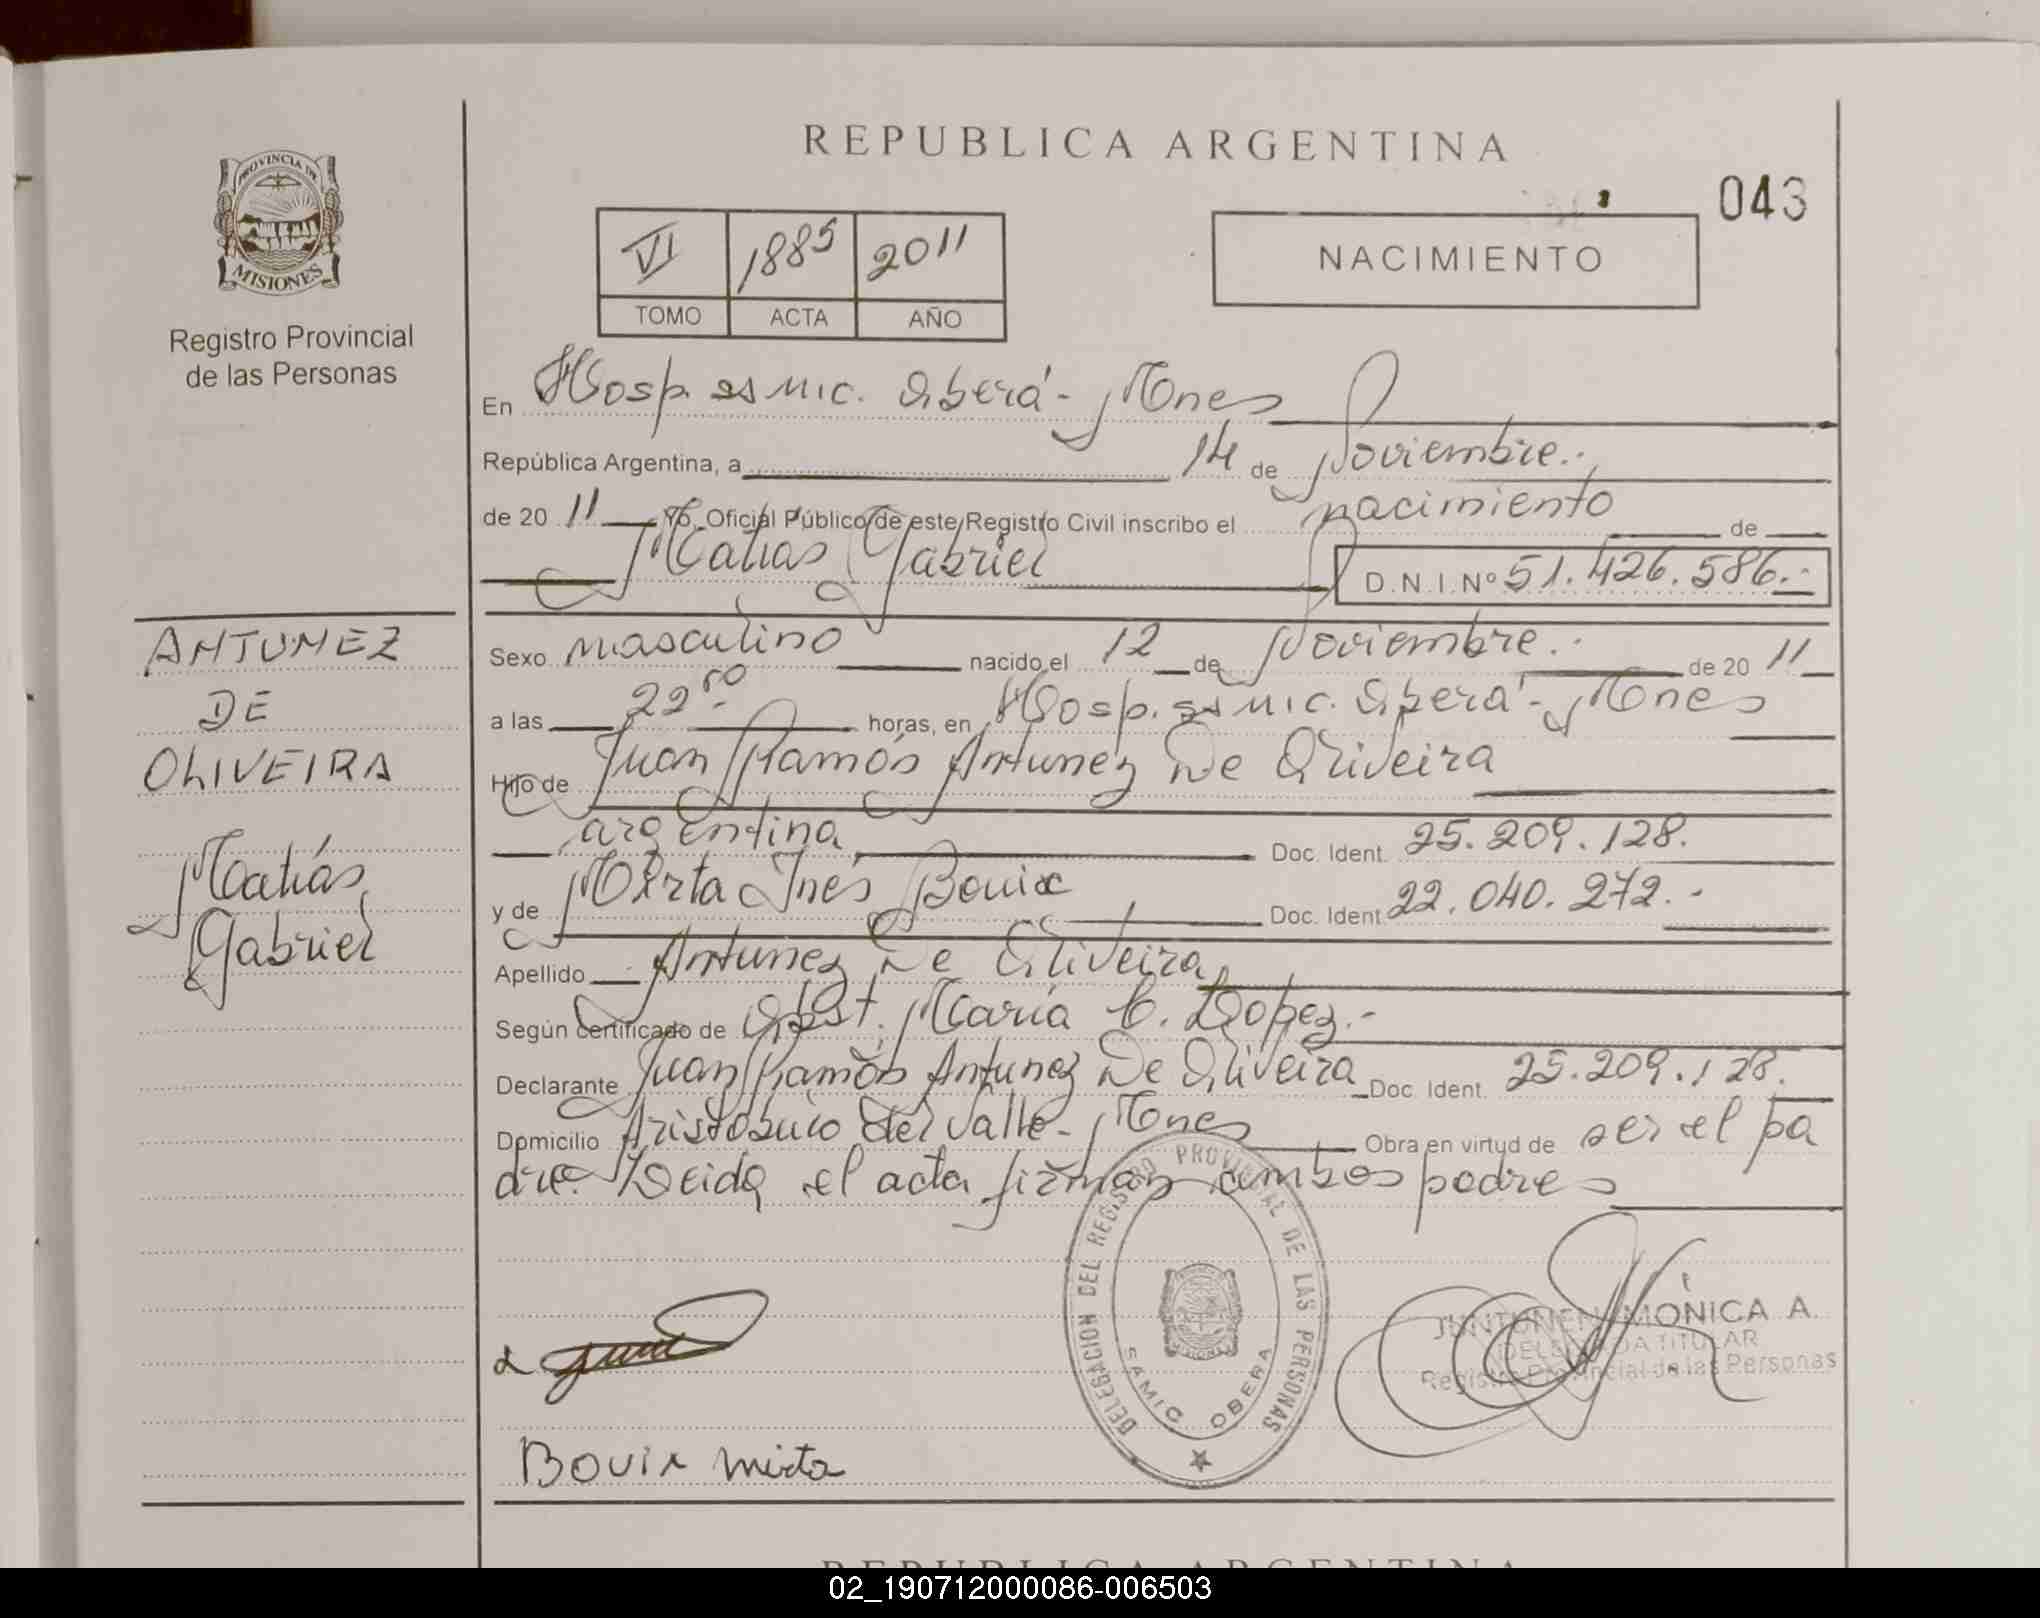 REPUBLICA ARGENTINA
043
PROVINCIA DE
MISIONES
Registro Provincial
de las Personas
VI 1885 2011
TOMO ACTA AÑO
NACIMIENTO
En Hosp. SAMIC. Oberá - Mnes
República Argentina, a 14 de Noviembre.-
de 20 11 Yo, Oficial Público de este Registro Civil inscribo el nacimiento de
Matías Gabriel D.N.I. Nº 51.426.586.-
ANTUNEZ
DE
OLIVEIRA
Matías
Gabriel
Sexo masculino nacido el 12 de Noviembre.- de 20 11
a las 22 horas, en Hosp. SAMIC. Oberá - Mnes
Hijo de Juan Ramón Antunez De Oliveira
argentina Doc. Ident. 25.209.128.
y de Mirta Inés Bouix Doc. Ident. 22.040.272.-
Apellido Antunez De Oliveira
Según certificado de Obst. María C. Lopez.-
Declarante Juan Ramón Antunez De Oliveira Doc. Ident. 25.209.128.
Domicilio Aristóbulo del Valle - Mnes Obra en virtud de ser el pa
dre. Leída el acta firman ambos padres
DELEGACION DEL REGISTRO PROVINCIAL DE LAS PERSONAS
SAMIC OBERA
JUNTUNEN MONICA A.
DELEGADA TITULAR
Registro Provincial de las Personas
Bouix Mirta
REPUBLICA ARGENTINA
02_190712000086-006503